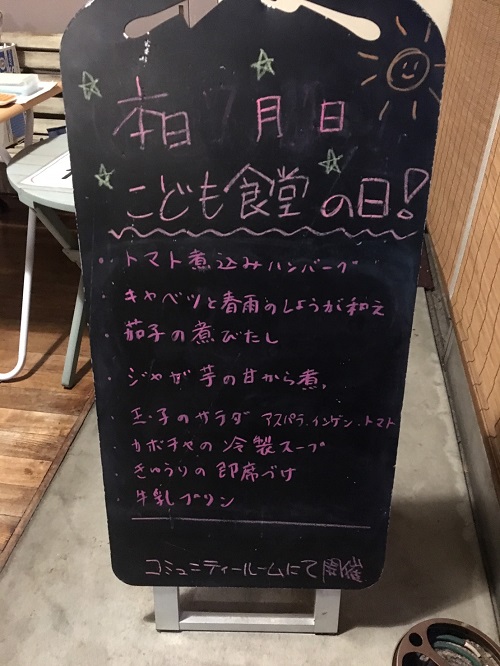 本日 月 日
こども食堂の日!
・トマト煮込みハンバーグ
・キャベツと春雨のしょうが和え
・茄子の煮びたし
・ジャガ芋の甘から煮
・玉子のサラダ アスパラ.インゲン.トマト
・カボチャの冷製スープ
・きゅうりの即席づけ
・牛乳プリン
コミュニティールームにて開催